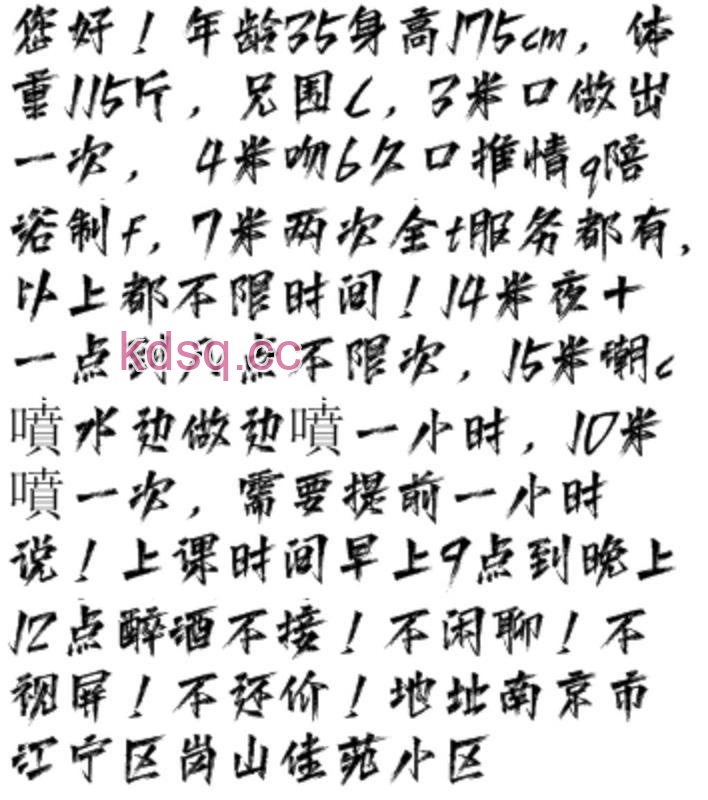 您好！年龄35身高175cm，体
重115斤，兄围C，3米口做出
一次，4米吻6久口推情q陪
浴制f，7米两次全t服务都有，
以上都不限时间！14米夜十
一点到八点不限次，15米潮c
噴水边做边噴一小时，10米
噴一次，需要提前一小时
说！上课时间早上9点到晚上
12点醉酒不接！不闲聊！不
视屏！不还价！地址南京市
江宁区岗山佳苑小区
kdsq.cc